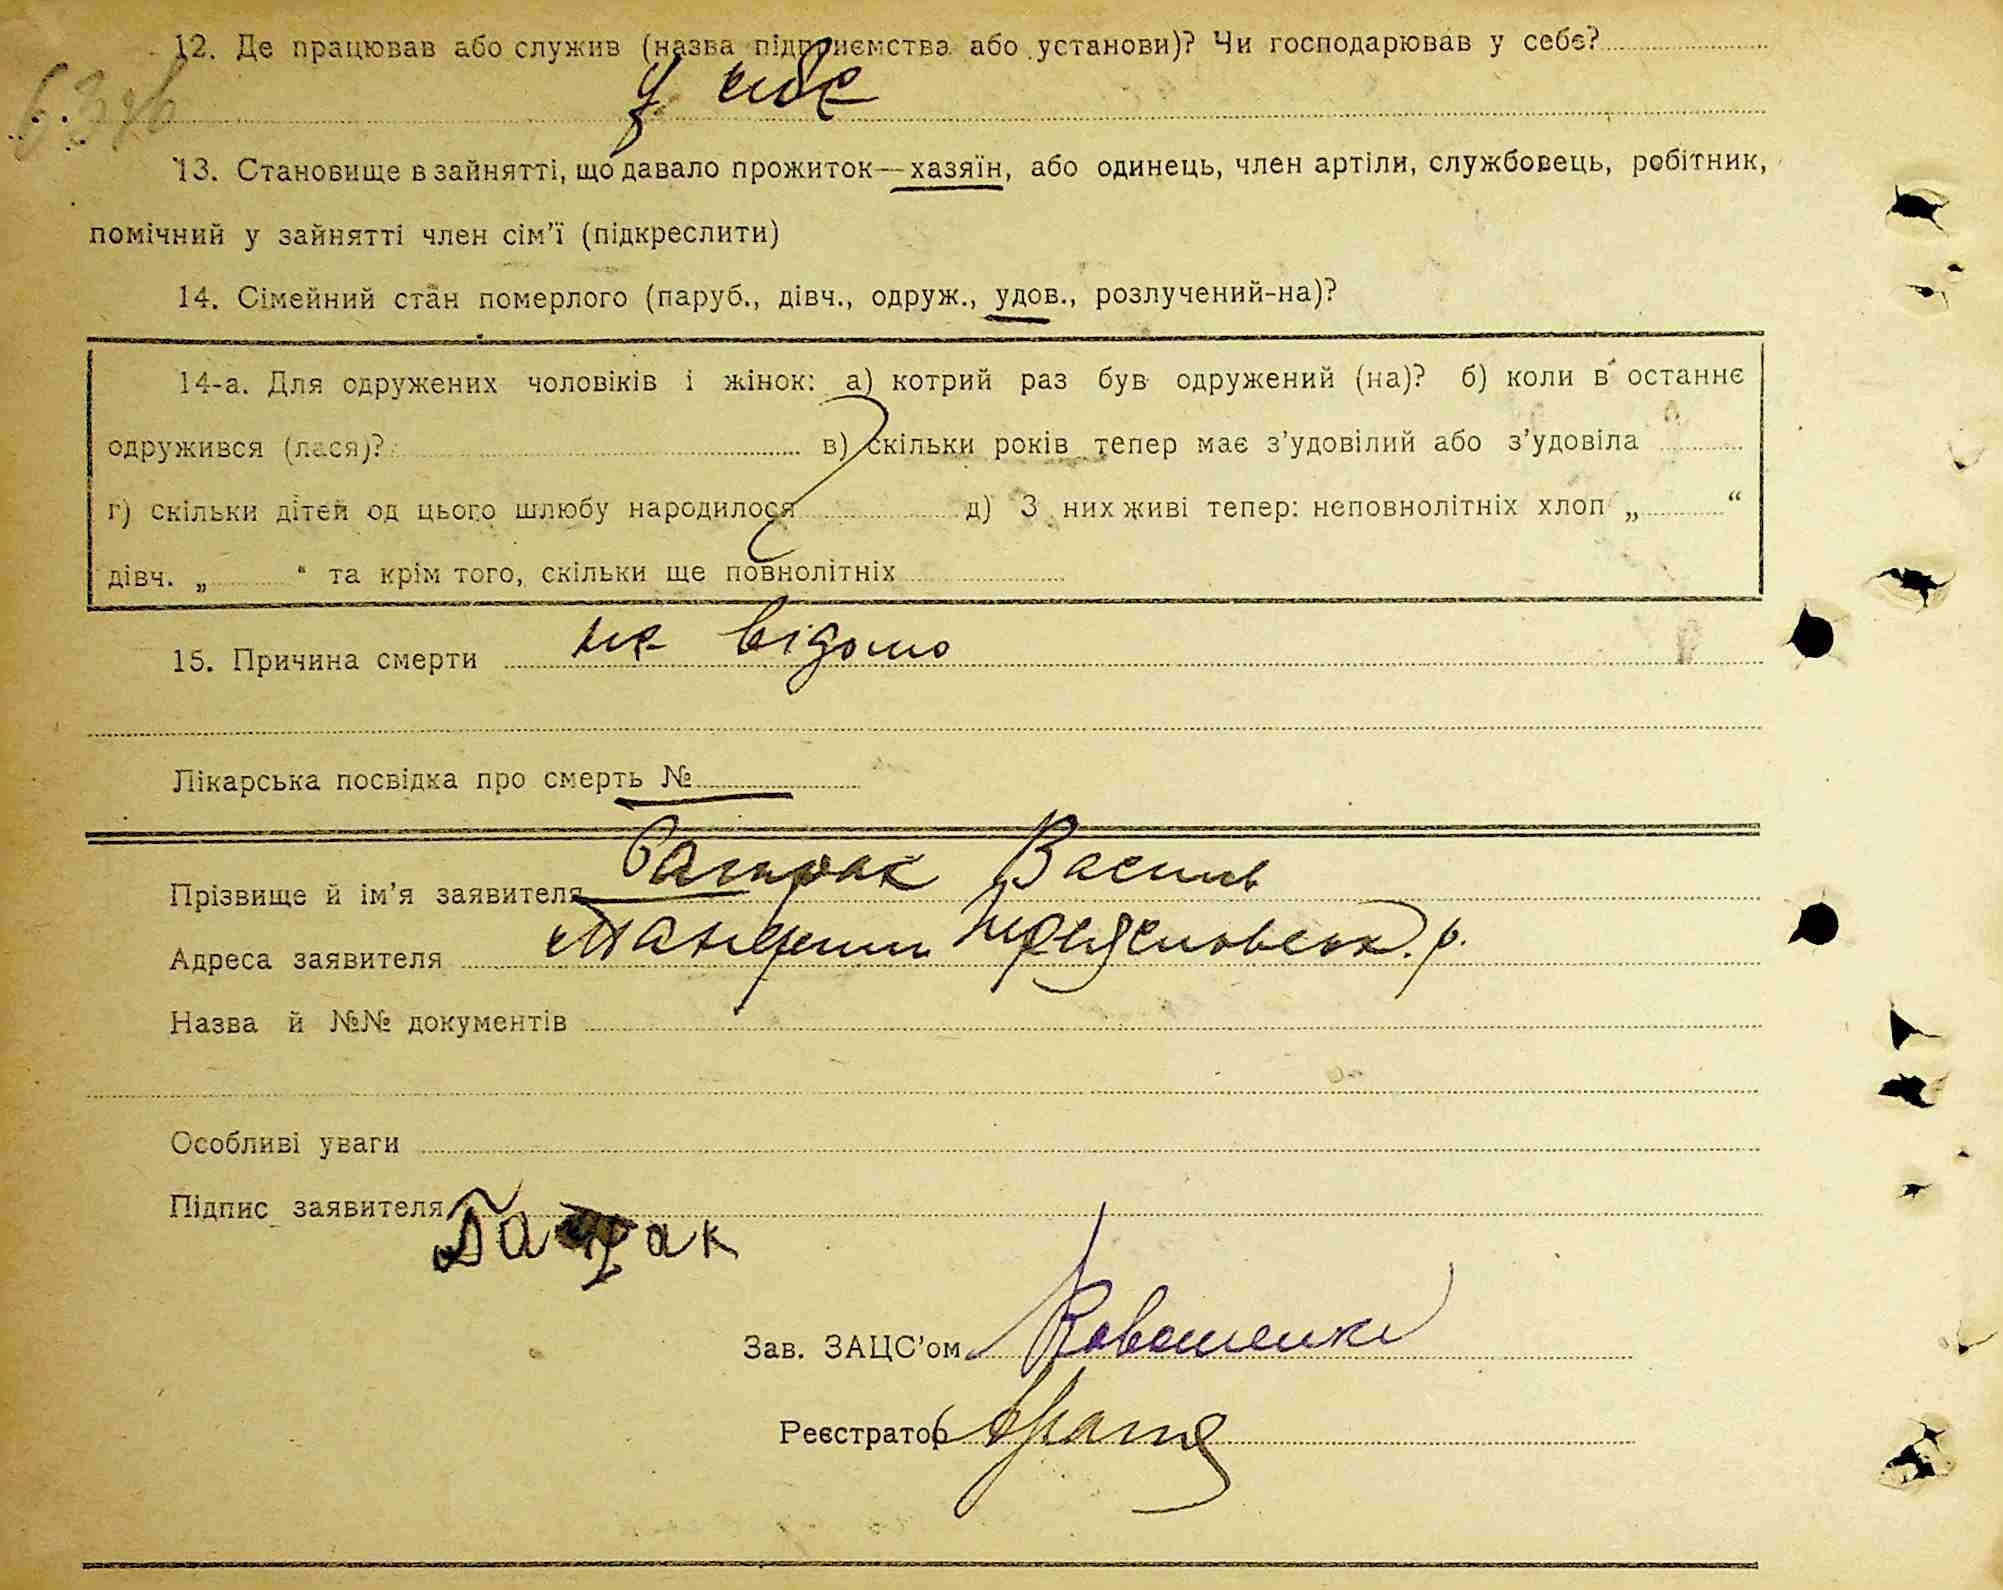 12. Де працював або служив (назва підприємства або установи)? Чи господарював у себе?
у себе
13. Становище в зайнятті, що давало прожиток—хазяїн, або одинець, член артіли, службовець, робітник,
помічний у зайнятті член сім’ї (підкреслити)
14. Сімейний стан померлого (паруб., дівч., одруж., удов., розлучений-на)?
14-а. Для одружених чоловіків і жінок: а) котрий раз був одружений (на)? б) коли в останнє
одружився (лася)? в) скільки років тепер має з’удовілий або з’удовіла
г) скільки дітей од цього шлюбу народилося д) З них живі тепер: неповнолітніх хлоп „ “
дівч. „ “ та крім того, скільки ще повнолітніх
15. Причина смерти не відомо
Лікарська посвідка про смерть №
Прізвище й ім’я заявителя Василь
Адреса заявителя р.
Назва й №№ документів
Особливі уваги
Підпис заявителя
Зав. ЗАЦС’ом
Реєстратор